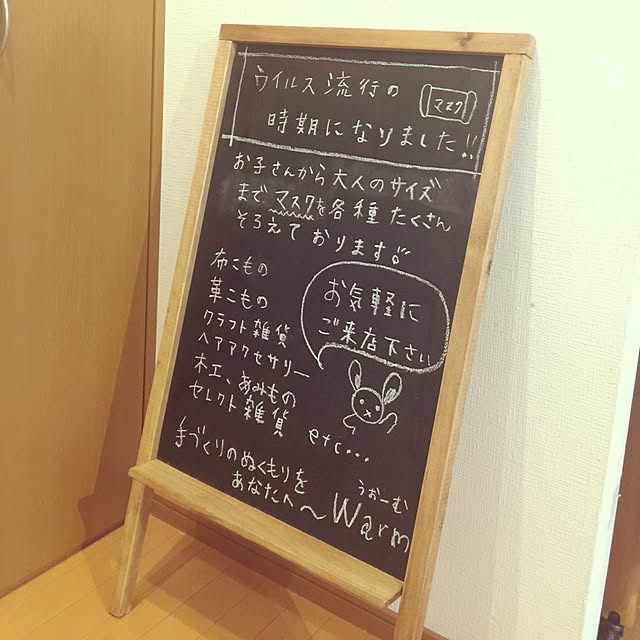 ウイルス流行の
マスク
時期になりました!!
お子さんから大人のサイズ
まで マスクを各種 たくさん
そろえております
布こもの
革こもの
クラフト雑貨
ヘアアクセサリー
木工、あみもの
セレクト雑貨
etc...
お気軽に
ご来店下さい
手づくりのぬくもりを
あなたへ〜
うぉーむ
Warm